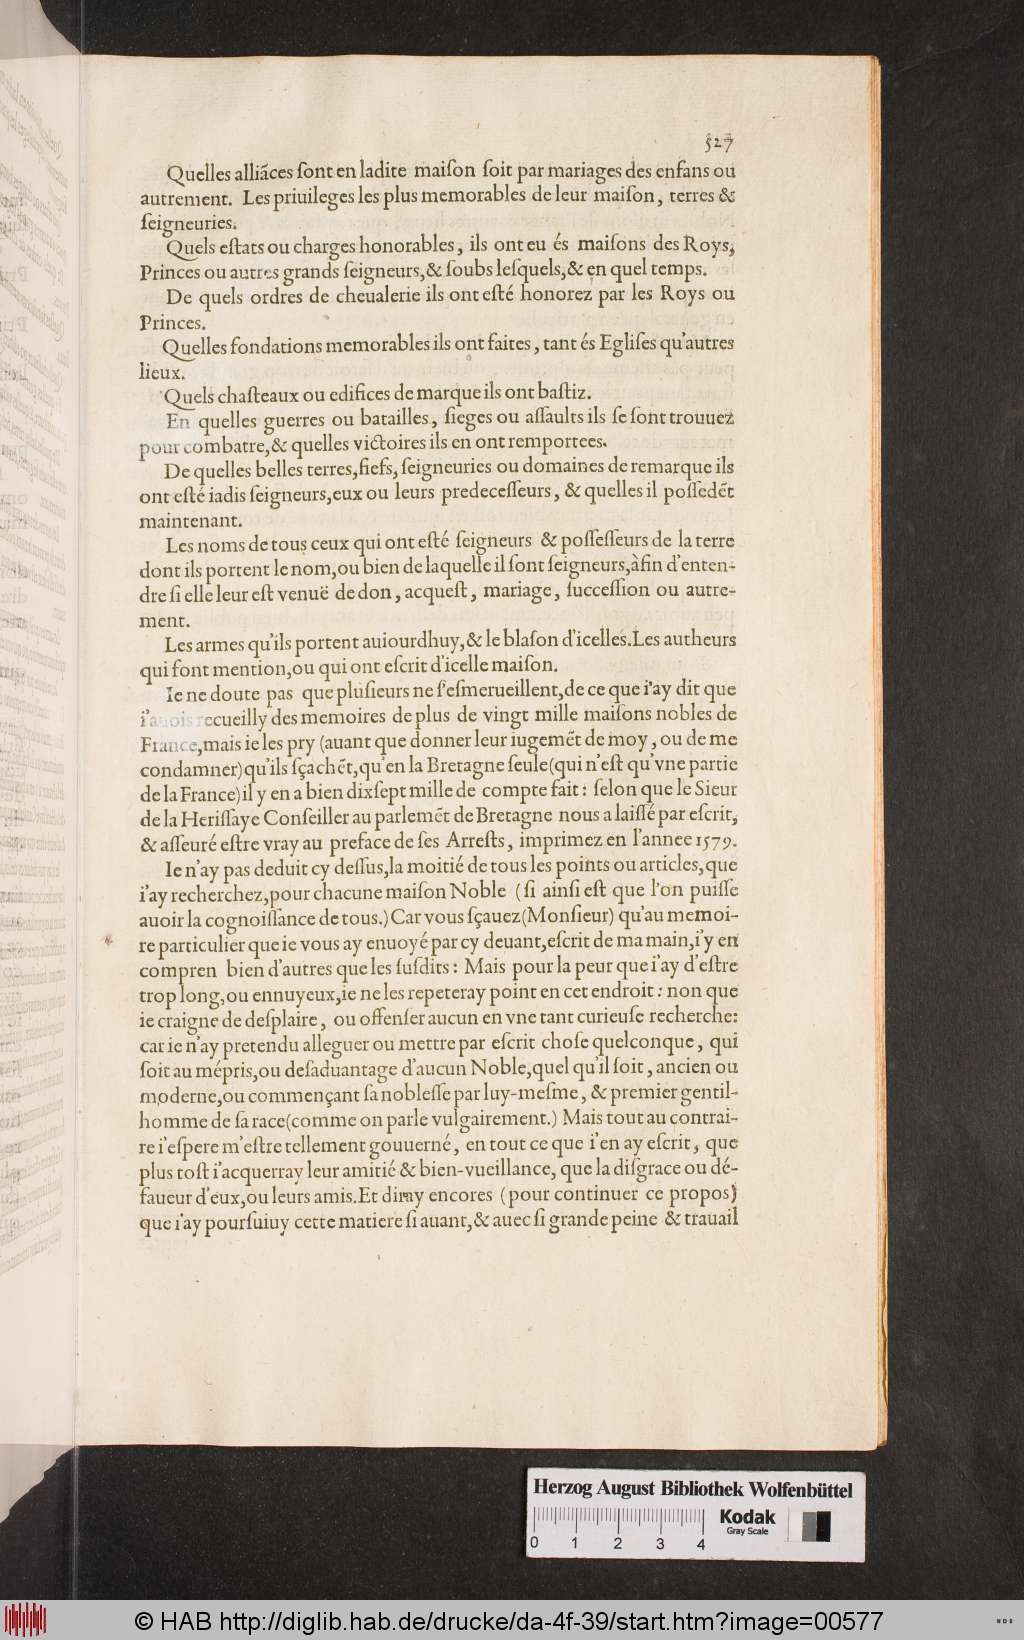 527
Quelles alliãces ſont en ladite maiſon ſoit par mariages des enfans ou
autrement. Les priuileges les plus memorables de leur maiſon, terres &
ſeigneuries.
Quels eſtats ou charges honorables, ils ont eu és maiſons des Roys,
Princes ou autres grands ſeigneurs,& ſoubs leſquels,& en quel temps.
De quels ordres de cheualerie ils ont eſté honorez par les Roys ou
Princes.
Quelles fondations memorables ils ont faites, tant és Egliſes qu'autres
lieux.
Quels chaſteaux ou edifices de marque ils ont baſtiz.
En quelles guerres ou batailles, ſieges ou aſſaults ils ſe ſont trouuez
pour combatre,& quelles victoires ils en ont remportees.
De quelles belles terres,fiefs, ſeigneuries ou domaines de remarque ils
ont eſté iadis ſeigneurs,eux ou leurs predeceſſeurs, & quelles il poſſedẽt
maintenant.
Les noms de tous ceux qui ont eſté ſeigneurs & poſſeſſeurs de la terre
dont ils portent le nom,ou bien de laquelle il ſont ſeigneurs,àfin d'enten-
dre ſi elle leur eſt venuë de don, acqueſt, mariage, ſucceſſion ou autre-
ment.
Les armes qu'ils portent auiourdhuy,& le blaſon d'icelles.Les autheurs
qui font mention,ou qui ont eſcrit d'icelle maiſon.
Ie ne doute pas que pluſieurs ne ſ'eſmerueillent,de ce que i'ay dit que
i'auois recueilly des memoires de plus de vingt mille maiſons nobles de
France,mais ie les pry (auant que donner leur iugemẽt de moy, ou de me
condamner)qu'ils ſçachẽt,qu'en la Bretagne ſeule(qui n'eſt qu'vne partie
de la France)il y en a bien dixſept mille de compte fait: ſelon que le Sieur
de la Heriſſaye Conſeiller au parlemẽt de Bretagne nous a laiſſé par eſcrit,
& aſſeuré eſtre vray au preface de ſes Arreſts, imprimez en l'annee 1579.
Ie n'ay pas deduit cy deſſus,la moitié de tous les points ou articles,que
i'ay recherchez,pour chacune maiſon Noble (ſi ainſi eſt que l'on puiſſe
auoir la cognoiſſance de tous.)Car vous ſçauez(Monſieur) qu'au memoi-
re particulier que ie vous ay enuoyé par cy deuant,eſcrit de ma main,i'y en
compren bien d'autres que les ſuſdits: Mais pour la peur que i'ay d'eſtre
trop long,ou ennuyeux,ie ne les repeteray point en cet endroit: non que
ie craigne de deſplaire, ou offenſer aucun en vne tant curieuſe recherche:
car ie n'ay pretendu alleguer ou mettre par eſcrit choſe quelconque, qui
ſoit au mépris,ou deſaduantage d'aucun Noble,quel qu'il ſoit, ancien ou
moderne,ou commençant ſa nobleſſe par luy-meſme, & premier gentil-
homme de ſa race(comme on parle vulgairement.) Mais tout au contrai-
re i'eſpere m'eſtre tellement gouuerné, en tout ce que i'en ay eſcrit, que
plus toſt i'acquerray leur amitié & bien-vueillance, que la diſgrace ou dé-
faueur d'eux,ou leurs amis.Et diray encores (pour continuer ce propos)
que i'ay pourſuiuy cette matiere ſi auant,& auec ſi grande peine & trauail
Herzog August Bibliothek Wolfenbüttel
0 1 2 3 4
Kodak
Gray Scale
© HAB http://diglib.hab.de/drucke/da-4f-39/start.htm?image=00577